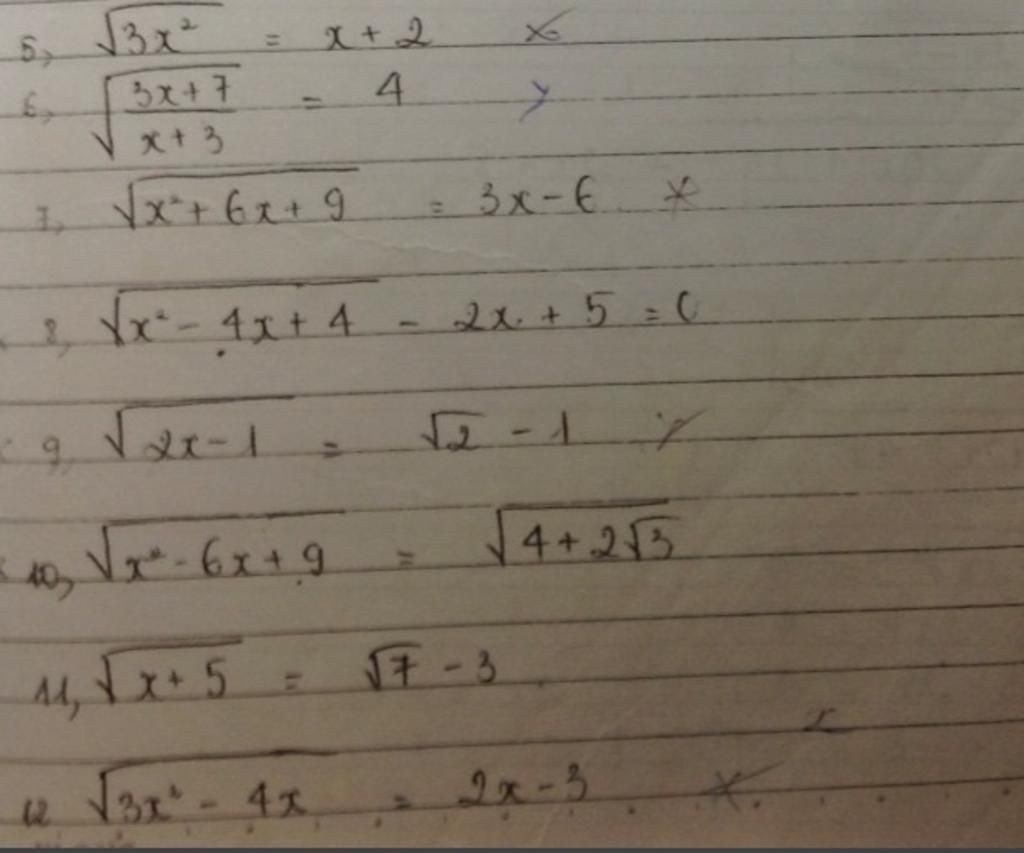 5, √3x² = x + 2
6, √(3x + 7)/(x + 3) = 4
7, √x² + 6x + 9 = 3x - 6
8, √x² - 4x + 4 - 2x + 5 = 0
9, √2x - 1 = √2 - 1
10, √x² - 6x + 9 = √4 + 2√3
11, √x + 5 = √7 - 3
12 √3x² - 4x = 2x - 3